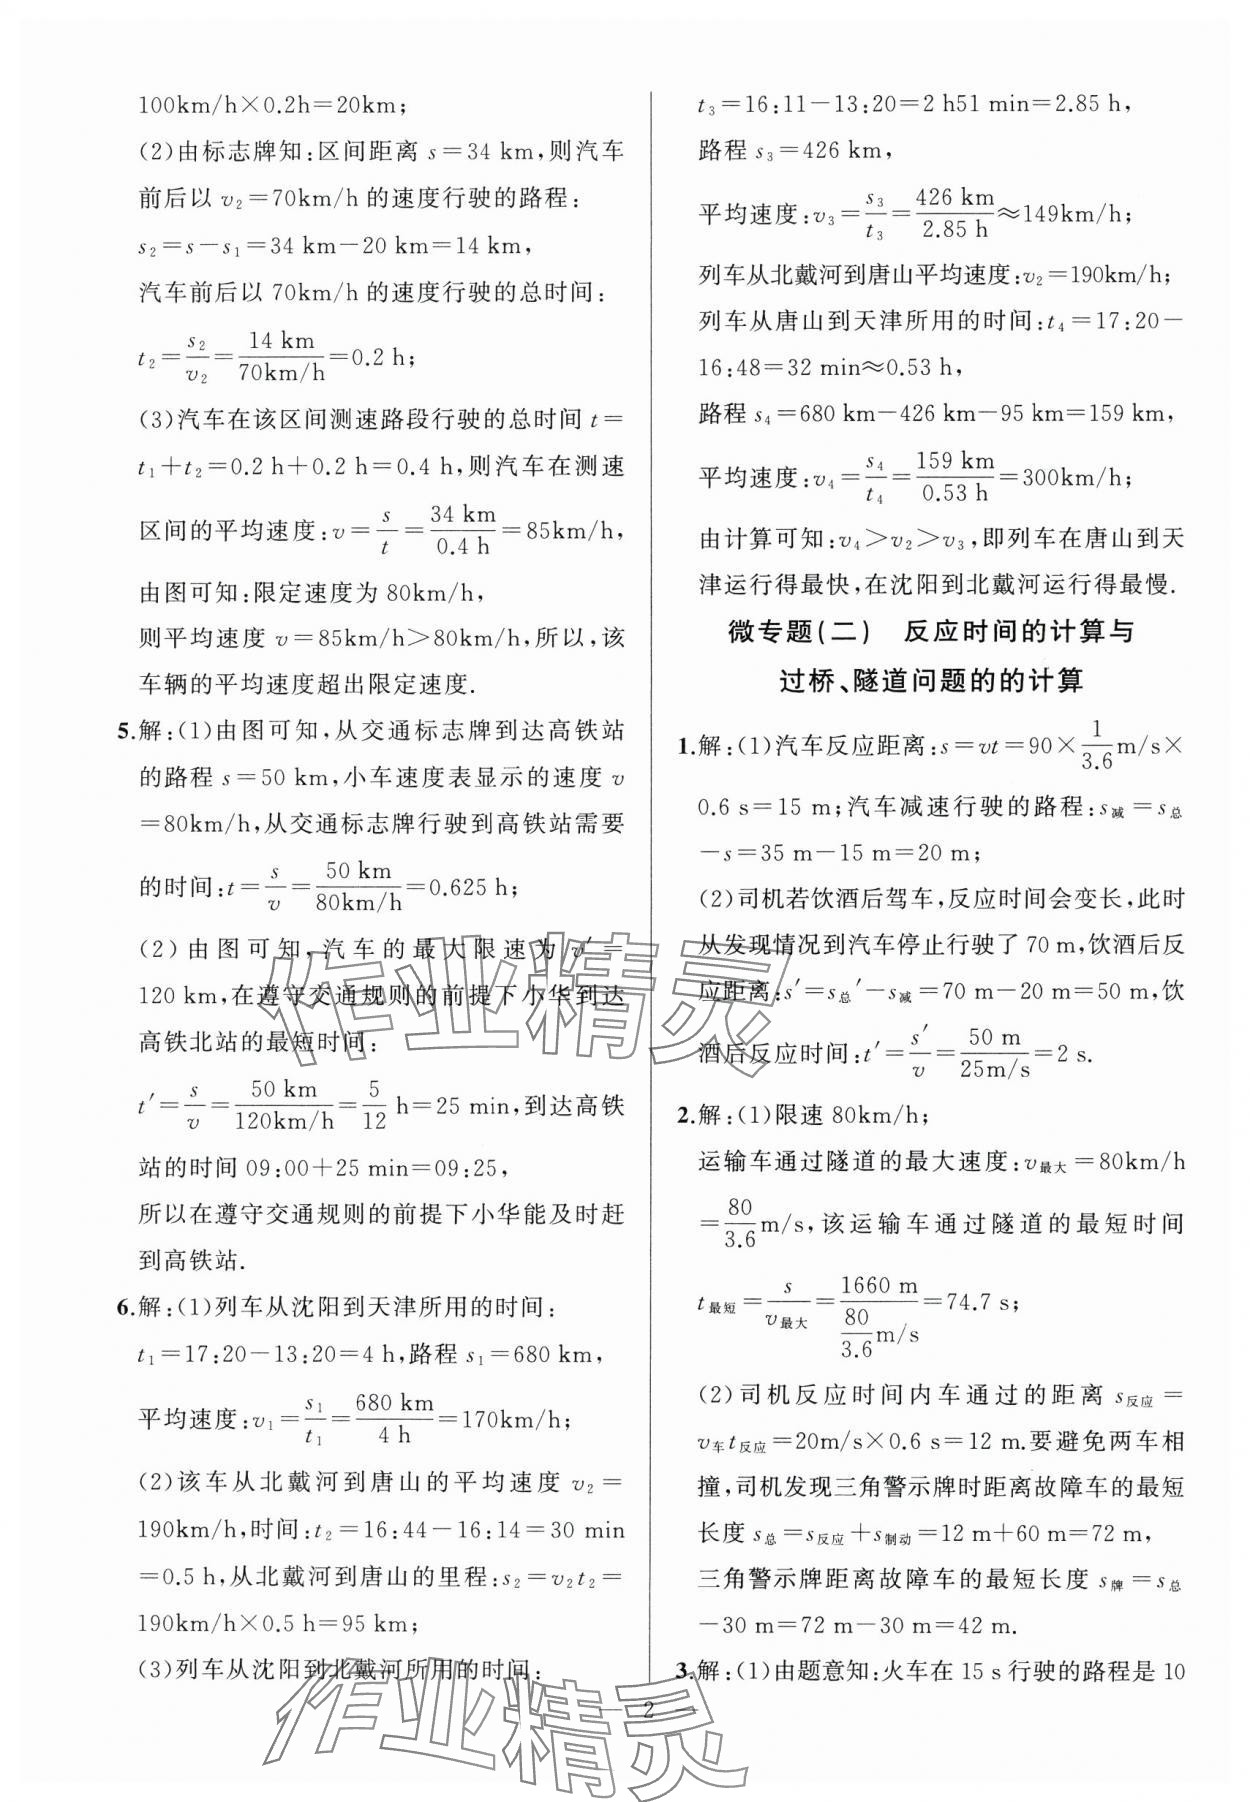 100km/h×0.2h=20km;
(2)由标志牌知:区间距离 s=34 km,则汽车
前后以 v₂=70km/h 的速度行驶的路程:
s₂=s-s₁=34 km-20 km=14 km,
汽车前后以 70km/h 的速度行驶的总时间:
t₂=s₂/v₂=14 km/70km/h=0.2 h;
(3)汽车在该区间测速路段行驶的总时间 t=
t₁+t₂=0.2 h+0.2 h=0.4 h,则汽车在测速
区间的平均速度:v=s/t=34 km/0.4 h=85km/h,
由图可知:限定速度为 80km/h,
则平均速度 v=85km/h>80km/h,所以,该
车辆的平均速度超出限定速度.
5.解:(1)由图可知,从交通标志牌到达高铁站
的路程 s=50 km,小车速度表显示的速度 v
=80km/h,从交通标志牌行驶到高铁站需要
的时间:t=s/v=50 km/80km/h=0.625 h;
(2)由图可知,汽车的最大限速为 v′=
120 km,在遵守交通规则的前提下小华到达
高铁北站的最短时间:
t′=s/v=50 km/120km/h=5/12 h=25 min,到达高铁
站的时间 09:00+25 min=09:25,
所以在遵守交通规则的前提下小华能及时赶
到高铁站.
6.解:(1)列车从沈阳到天津所用的时间:
t₁=17:20-13:20=4 h,路程 s₁=680 km,
平均速度:v₁=s₁/t₁=680 km/4 h=170km/h;
(2)该车从北戴河到唐山的平均速度 v₂=
190km/h,时间:t₂=16:44-16:14=30 min
=0.5 h,从北戴河到唐山的里程:s₂=v₂t₂=
190km/h×0.5 h=95 km;
(3)列车从沈阳到北戴河所用的时间:
t₃=16:11-13:20=2 h51 min=2.85 h,
路程 s₃=426 km,
平均速度:v₃=s₃/t₃=426 km/2.85 h≈149km/h;
列车从北戴河到唐山平均速度:v₂=190km/h;
列车从唐山到天津所用的时间:t₄=17:20-
16:48=32 min≈0.53 h,
路程 s₄=680 km-426 km-95 km=159 km,
平均速度:v₄=s₄/t₄=159 km/0.53 h=300km/h;
由计算可知:v₄>v₂>v₃,即列车在唐山到天
津运行得最快,在沈阳到北戴河运行得最慢.
微专题(二) 反应时间的计算与
过桥、隧道问题的的计算
1.解:(1)汽车反应距离:s=vt=90×1/3.6m/s×
0.6 s=15 m;汽车减速行驶的路程:s减=s总
-s=35 m-15 m=20 m;
(2)司机若饮酒后驾车,反应时间会变长,此时
从发现情况到汽车停止行驶了 70 m,饮酒后反
应距离:s′=s总′-s减=70 m-20 m=50 m,饮
酒后反应时间:t′=s′/v=50 m/25m/s=2 s.
2.解:(1)限速 80km/h;
运输车通过隧道的最大速度:v最大=80km/h
=80/3.6m/s,该运输车通过隧道的最短时间
t最短=s/v最大=1660 m/(80/3.6m/s)=74.7 s;
(2)司机反应时间内车通过的距离 s反应=
v车t反应=20m/s×0.6 s=12 m.要避免两车相
撞,司机发现三角警示牌时距离故障车的最短
长度 s总=s反应+s制动=12 m+60 m=72 m,
三角警示牌距离故障车的最短长度 s牌=s总
-30 m=72 m-30 m=42 m.
3.解:(1)由题意知:火车在 15 s 行驶的路程是 10
— 2 —
作业精灵
作业精灵